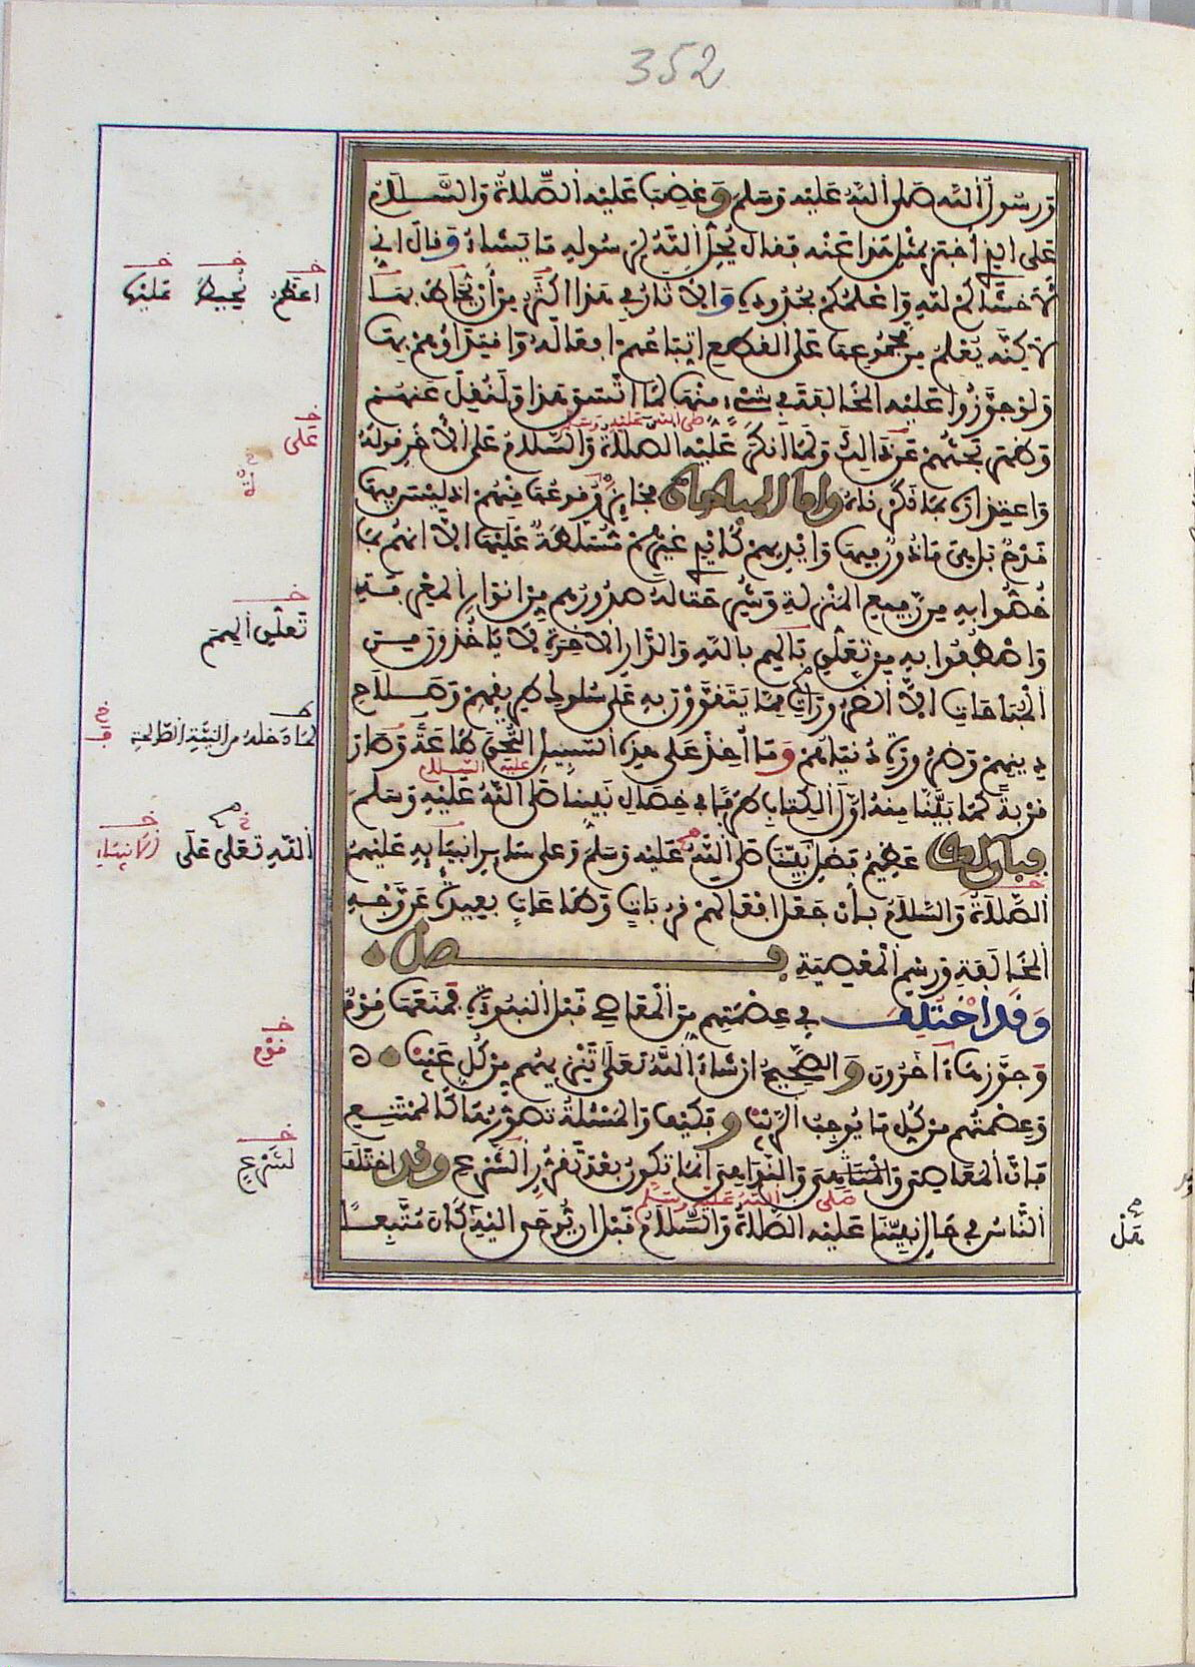 352
ورسول الله صلى الله عليه وسلم وغضب عليه الصلاة والسلام
على الذي أخبر بمثل هذا عنه فقال يحل الله لرسوله ما يشاء وقال اني
لأخشاكم لله وأعلمكم بحدوده والآثار في هذا أكثر من أن نحاط بها
لاكنه يعلم من مجموعها على القطع اتباعهم أفعاله واقتداؤهم بها
ولو جوزوا عليه المخالفة في شيء منها لما اتسق هذا ولنقل عنهم
صلى الله عليه وسلم
وظهر بحثهم عن ذالك ولما أنكر عليه الصلاة والسلام على الآخر قوله
واعتذاره بما ذكرناه وأما المباحات فجائز وقوعها منهم اذ ليس فيها
قدح بل هي مأذون فيها وأيديهم كأيدي غيرهم مسلطة عليها إلا انهم بما
خصوا به من رفيع المنزلة وشرحت له صدورهم من أنوار المعرفة
واصطفوا به من تعلق بالهم بالله والدار الآخرة لا يأخذون من
المباحات إلا الضرورات مما يتقوون به على سلوك طريقهم وصلاح
دينهم وضرورة دنياهم وما أخذ على هذه السبيل التحق طاعة وصار
عليه السلام
قربة كما بينا منه أول الكتاب طرفا في خصال نبينا صلى الله عليه وسلم
فبان لك عظيم فضل نبينا صلى الله عليه وسلم وعلى سائر أنبيائه عليهم
الصلاة والسلام بأن جعل أفعالهم قربات وطاعات بعيدة عن وجه
المخالفة ورسم المعصية فصل
وقد اختلف في عصمتهم من المعاصي قبل النبوة فمنعها قوم
وجوزها آخرون والصحيح ان شاء الله تعلى تنزيههم من كل عيب
وعصمتهم من كل ما يوجب الريب وفكيف والمسئلة تصورها كالممتنع
فإن المعاصي والمناهي والنواهي انما تكون بعد تقرر الشرع وقد اختلف
صلى الله عليه وسلم
الناس في حال نبينا عليه الصلاة والسلام قبل ان يوحى اليه كان متبعا
عليها
على
تعلق الهمم
الله تعلى على
قوم
لشرع
هل